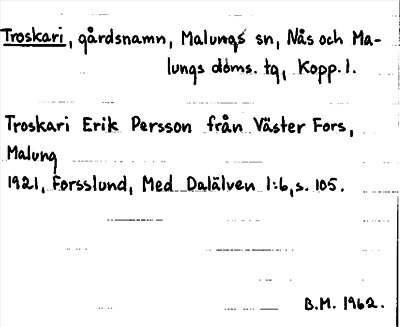 Troskari, gårdsnamn, Malungs sn, Nås och Ma-
lungs doms. tg, Kopp. l.
Troskari Erik Persson från Väster Fors,
Malung
1921, Forsslund, Med Dalälven 1:6, s. 105.
B.M. 1962.